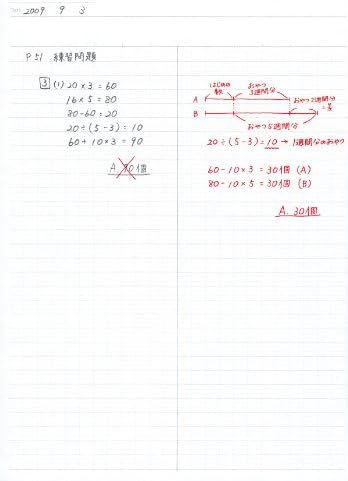 Date 2009 9 3
P51 練習問題
3 (1) 20×3=60
16×5=80
80-60=20
20÷(5-3)=10
60+10×3=90
A. 90個
はじめの
個数
おやつ
3週間分
おやつ2週間分
=差
A
B
おやつ5週間分
20÷(5-3)=10→1週間分のおやつ
60-10×3=30個 (A)
80-10×5=30個 (B)
A. 30個